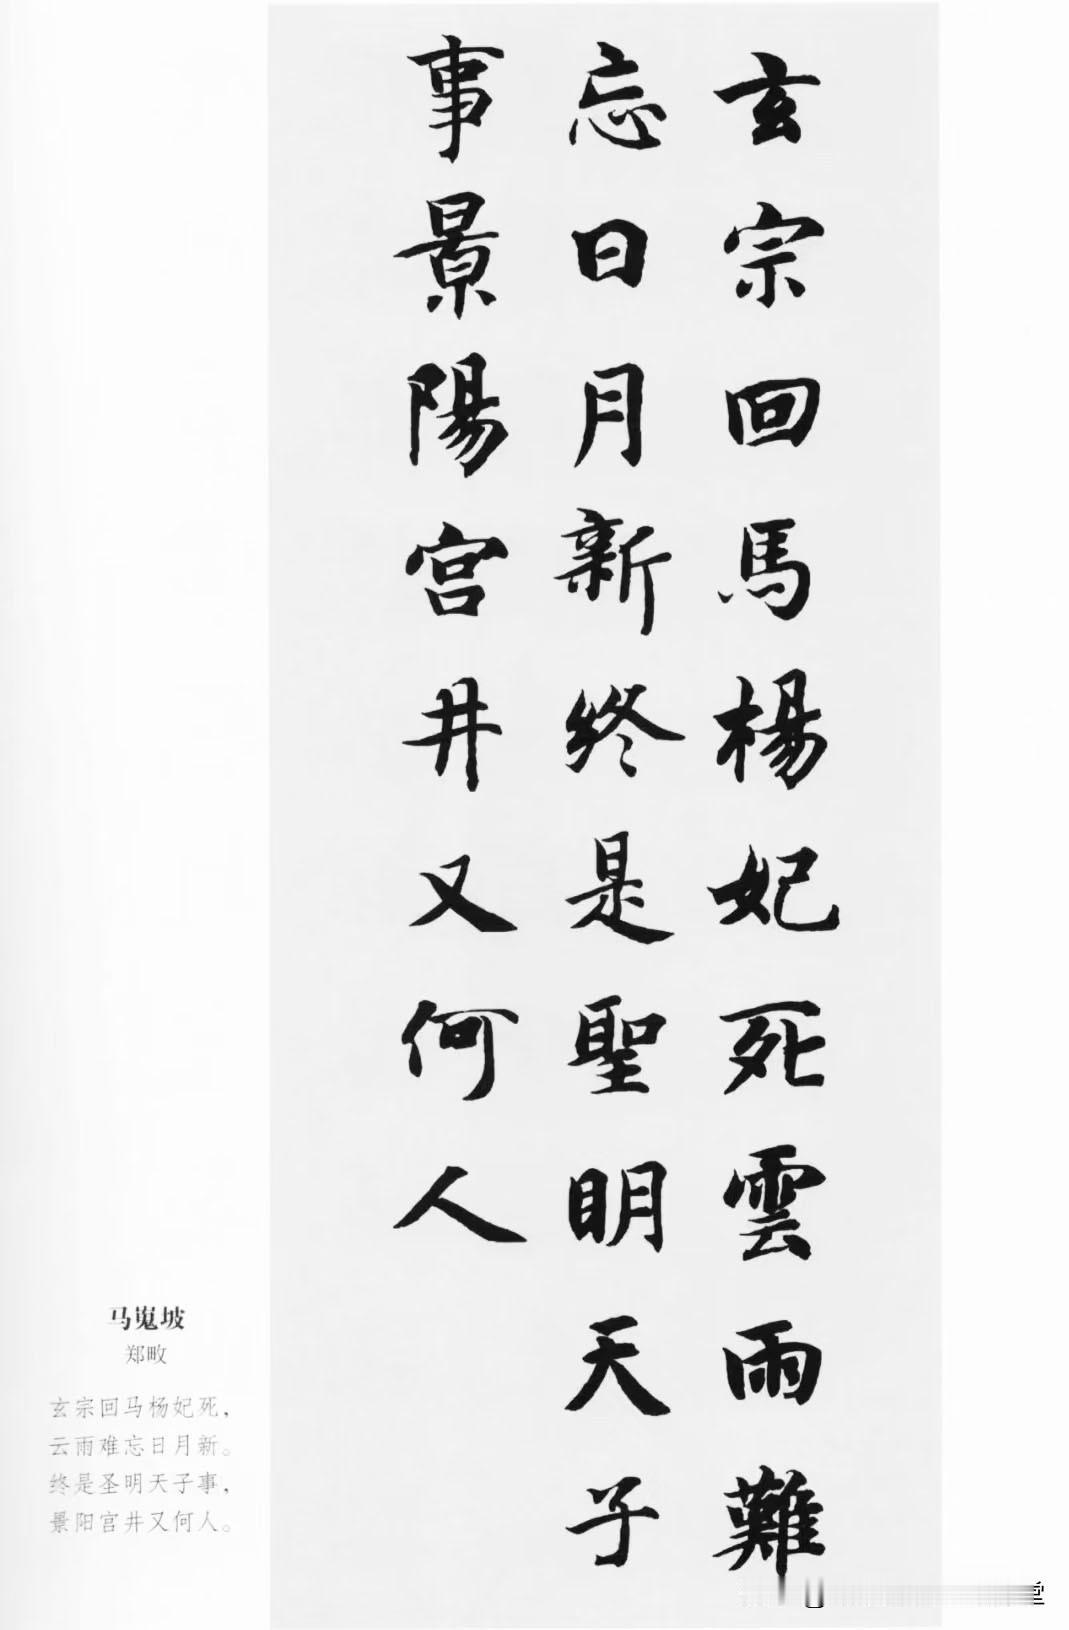 玄宗回馬楊妃死雲雨難
忘日月新終是聖明天子
事景陽宫井又何人
马嵬坡
郑畋
玄宗回马杨妃死，
云雨难忘日月新。
终是圣明天子事，
景阳宫井又何人。